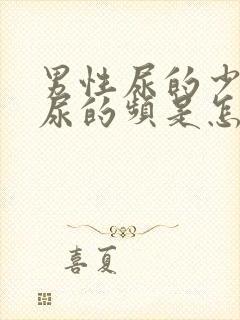 男性尿的少
尿的频是怎
喜夏